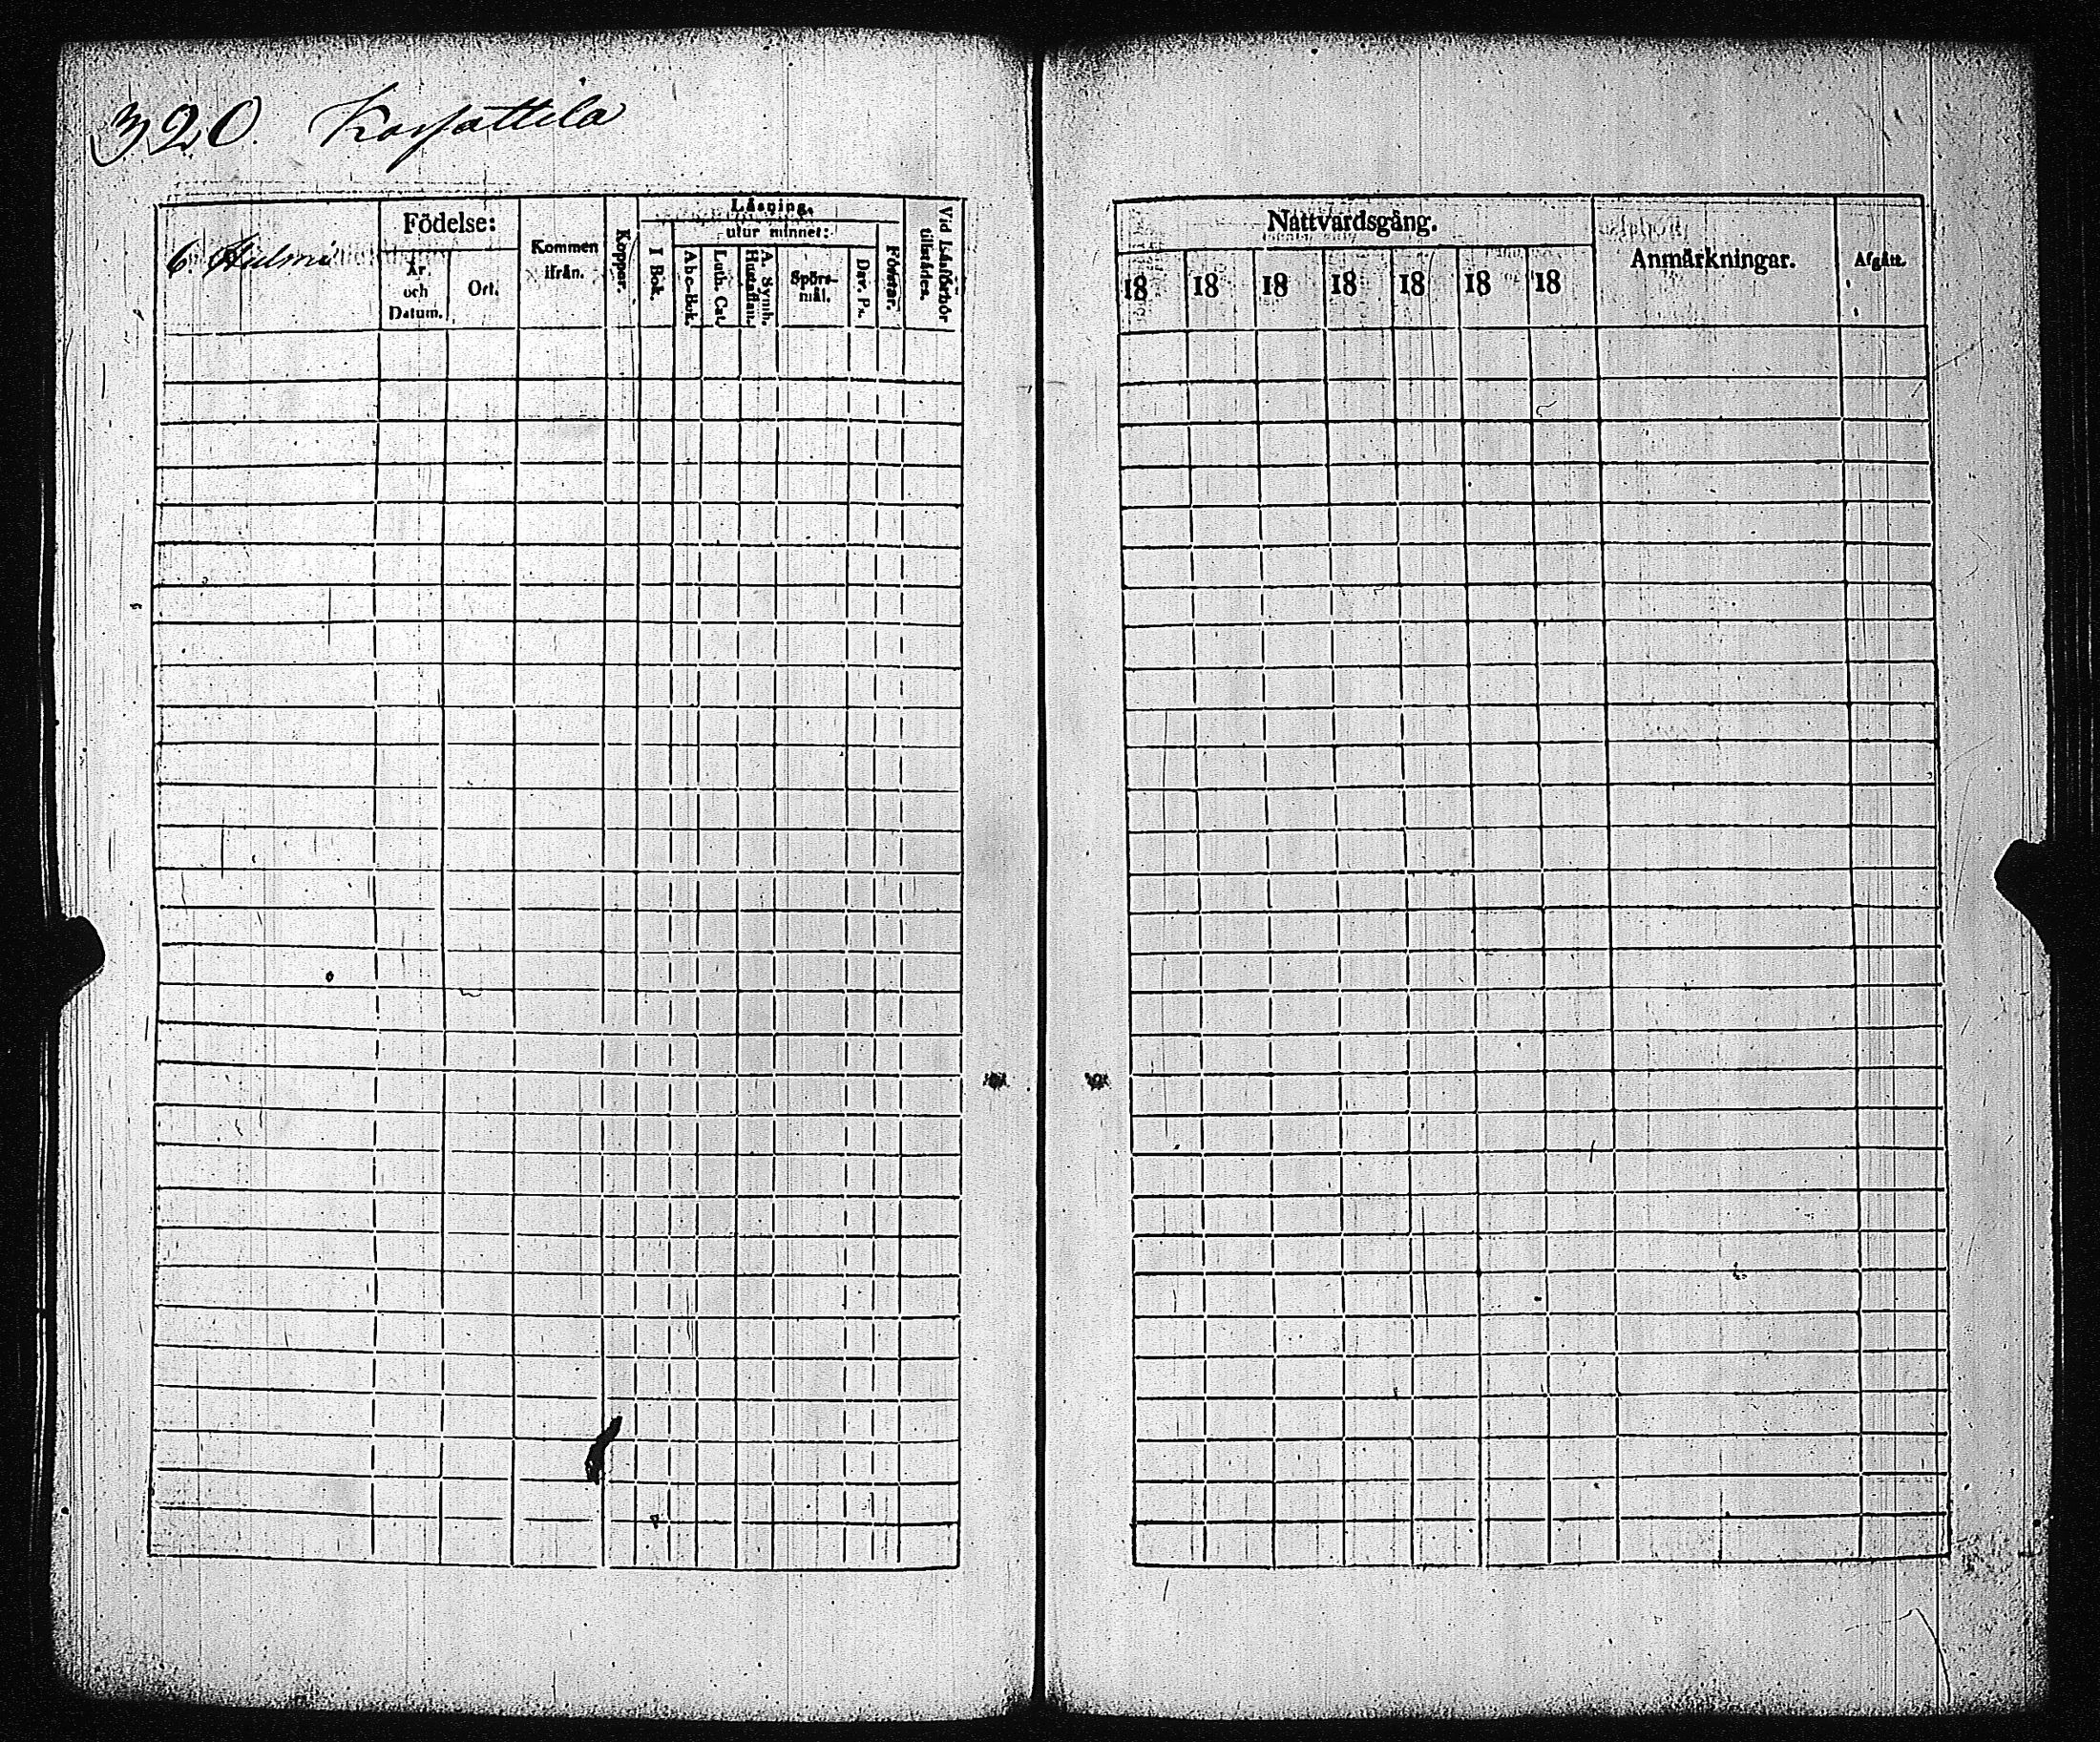 320. Korjattila
6. Hielmi
Födelse:
År och Datum.
Ort.
Kommen ifrån.
Koppor.
Läsning.
I Bok.
utur minnet:
Abc-Bok.
Luth. Cat.
A. Symb. Hustaflan.
Spörsmål.
Dav. Ps.
Förstår.
Vid Läsförhör tillstädes.
Nattvardsgång.
18 18 18 18 18 18 18
Anmärkningar.
Afgått.